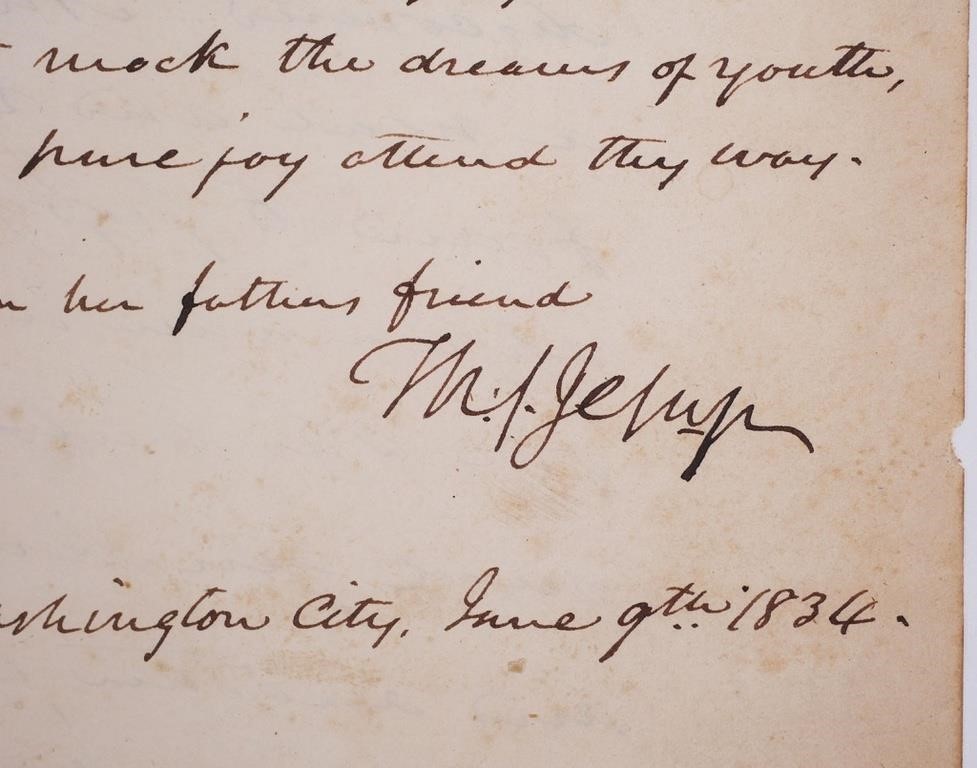 mock the dreams of youth,
pure joy attend thy way.
her fathers friend
Th: S. Jesup
ashington City, June 9th. 1834.